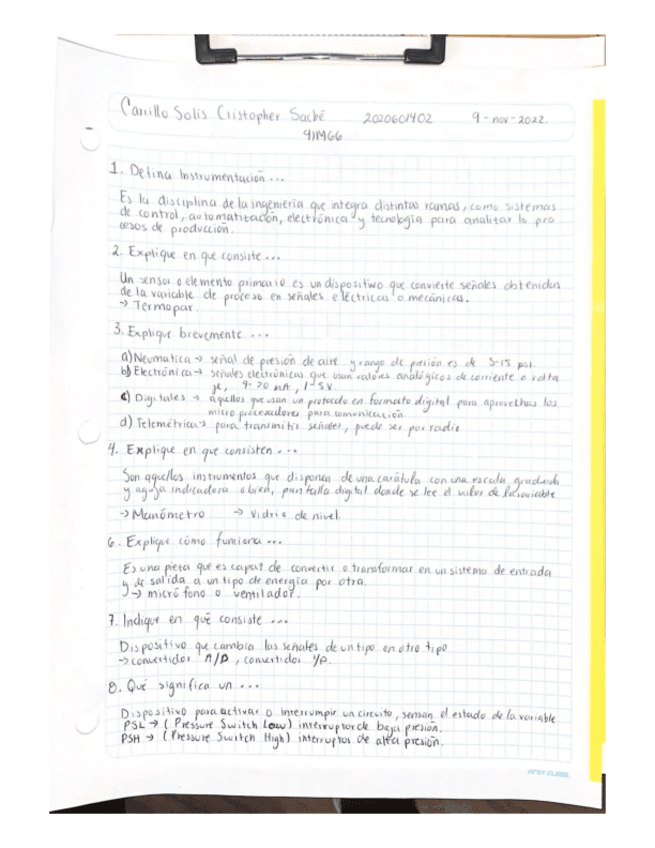 Carrillo Solis Cristopher Saché 2020601402 9-nov-2022.
4IM66
1. Defina Instrumentación...
Es la disciplina de la ingeniería que integra distintas ramas, como sistemas
de control, automatización, electrónica y tecnología para analizar lo pro
cesos de producción.
2. Explique en que consiste...
Un sensor o elemento primario es un dispositivo que convierte señales obtenidas
de la variable de proceso en señales eléctricas o mecánicas.
→ Termopar.
3. Explique brevemente...
a) Neumatica → señal de presión de aire y rango de presión es de 3-15 psi.
b) Electrónica → señales electrónicas que usan valores analógicos de corriente o volta
je, 4-20 mA, 1-5V.
c) Digitales → aquellos que usan un protocolo en formato digital para aprovechas los
micro procesadores para comunicación.
d) Telemétrica → para transmitir señales, puede ser por radio
4. Explique en que consisten...
Son aquellos instrumentos que disponen de una carátula con una escala graduada
y aguja indicadora o bien, pantalla digital donde se lee el valor de la variable
→ Manómetro → Vidrio de nivel.
6. Explique cómo funciona...
Es una pieza que es capaz de convertir o transformar en un sistema de entrada
y de salida a un tipo de energía por otra.
→ micrófono o ventilador.
7. Indique en qué consiste...
Dispositivo que cambia las señales de un tipo en otro tipo
→ convertidor A/D, convertidor I/P.
8. Qué significa un...
Dispositivo para activar o interrumpir un circuito, sensan el estado de la variable
PSL → (Pressure Switch Low) interruptor de baja presión.
PSH → (Pressure Switch High) interruptor de alta presión.